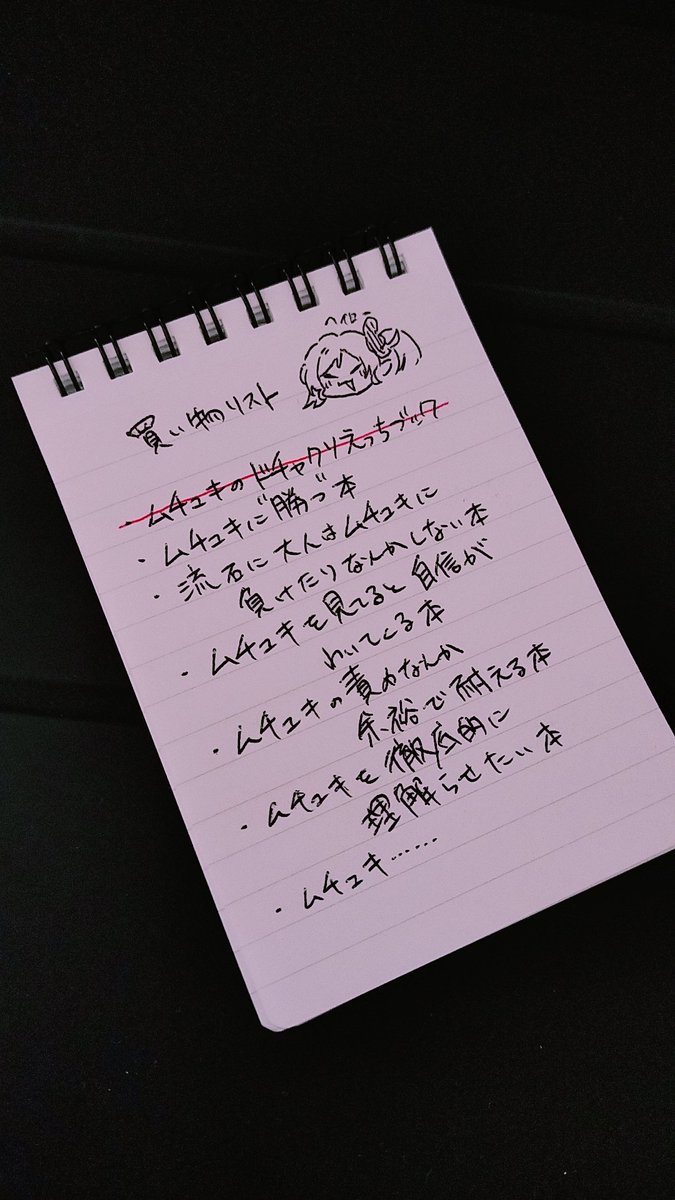 ヘイロー
買い物リスト
・ムチュキのドチャクソえっちブック
・ムチュキに"勝つ"本
・流石に大人はムチュキに
負けたりなんかしない本
・ムチュキを見てると自信が
わいてくる本
・ムチュキの責めなんか
余裕で耐える本
・ムチュキを徹底的に
理解らせたい本
・ムチュキ……